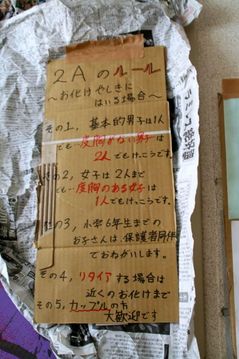 2Aのルール
〜お化けやしきに
はいる場合〜
その1, 基本的男子は1人
でも…度胸がない男子は
2人でもけっこうです。
その2, 女子は2人まで
でも…度胸のある女子は
1人でもけっこうです。
その3, 小学6年生までの
お子さんは保護者同伴
でおねがいします。
その4, リタイアする場合は
近くのお化けまで
その5, カップルの方
大歓迎です